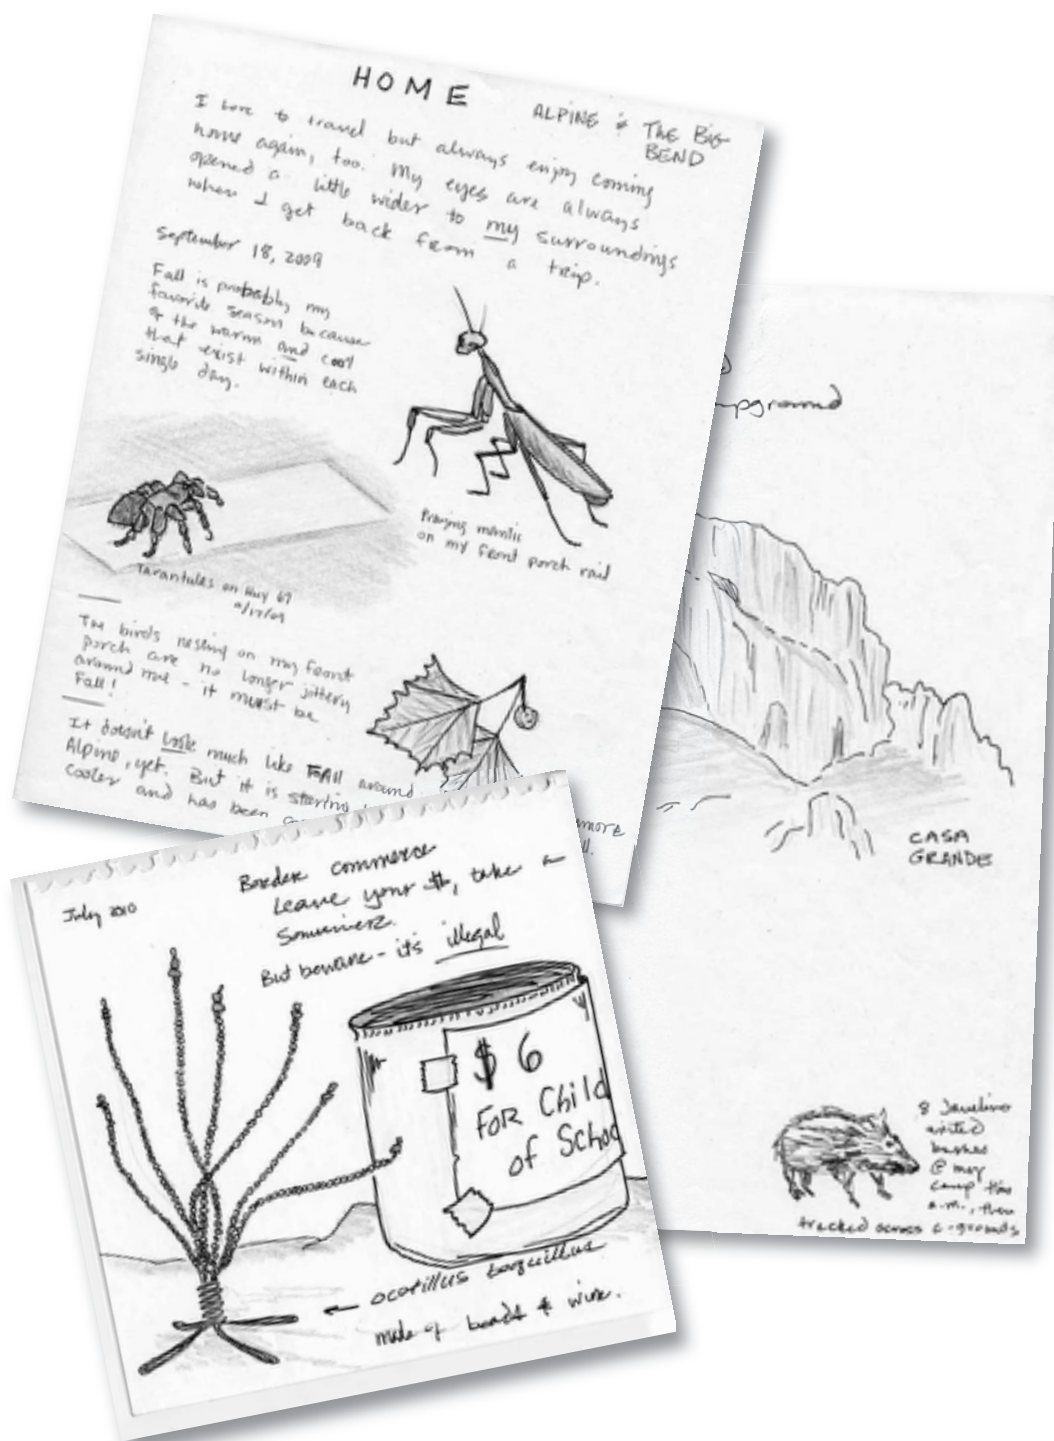 HOME
ALPINE & THE BIG
BEND
I love to travel but always enjoy coming
home again, too. My eyes are always
opened a little wider to my surroundings
when I get back from a trip.
September 18, 2009
Fall is probably my
favorite season because
of the warm and cool
that exist within each
single day.
Praying mantis
on my front porch rail
Tarantulas on Hwy 67
The birds nesting on my front
porch are no longer jittery
around me - it must be
Fall!
It doesn't look much like Fall around
Alpine, yet. But it is starting
cooler and has been
pground
CASA
GRANDE
8 Javelina
visited
@ my
camp this
a.m., then
tracked across c-grounds
July 2010
Border commerce
Leave your $, take a
Souvenir.
But beware - it's illegal
$ 6
FOR Child
of School
← ocotillus toquillus
made of beads & wire.